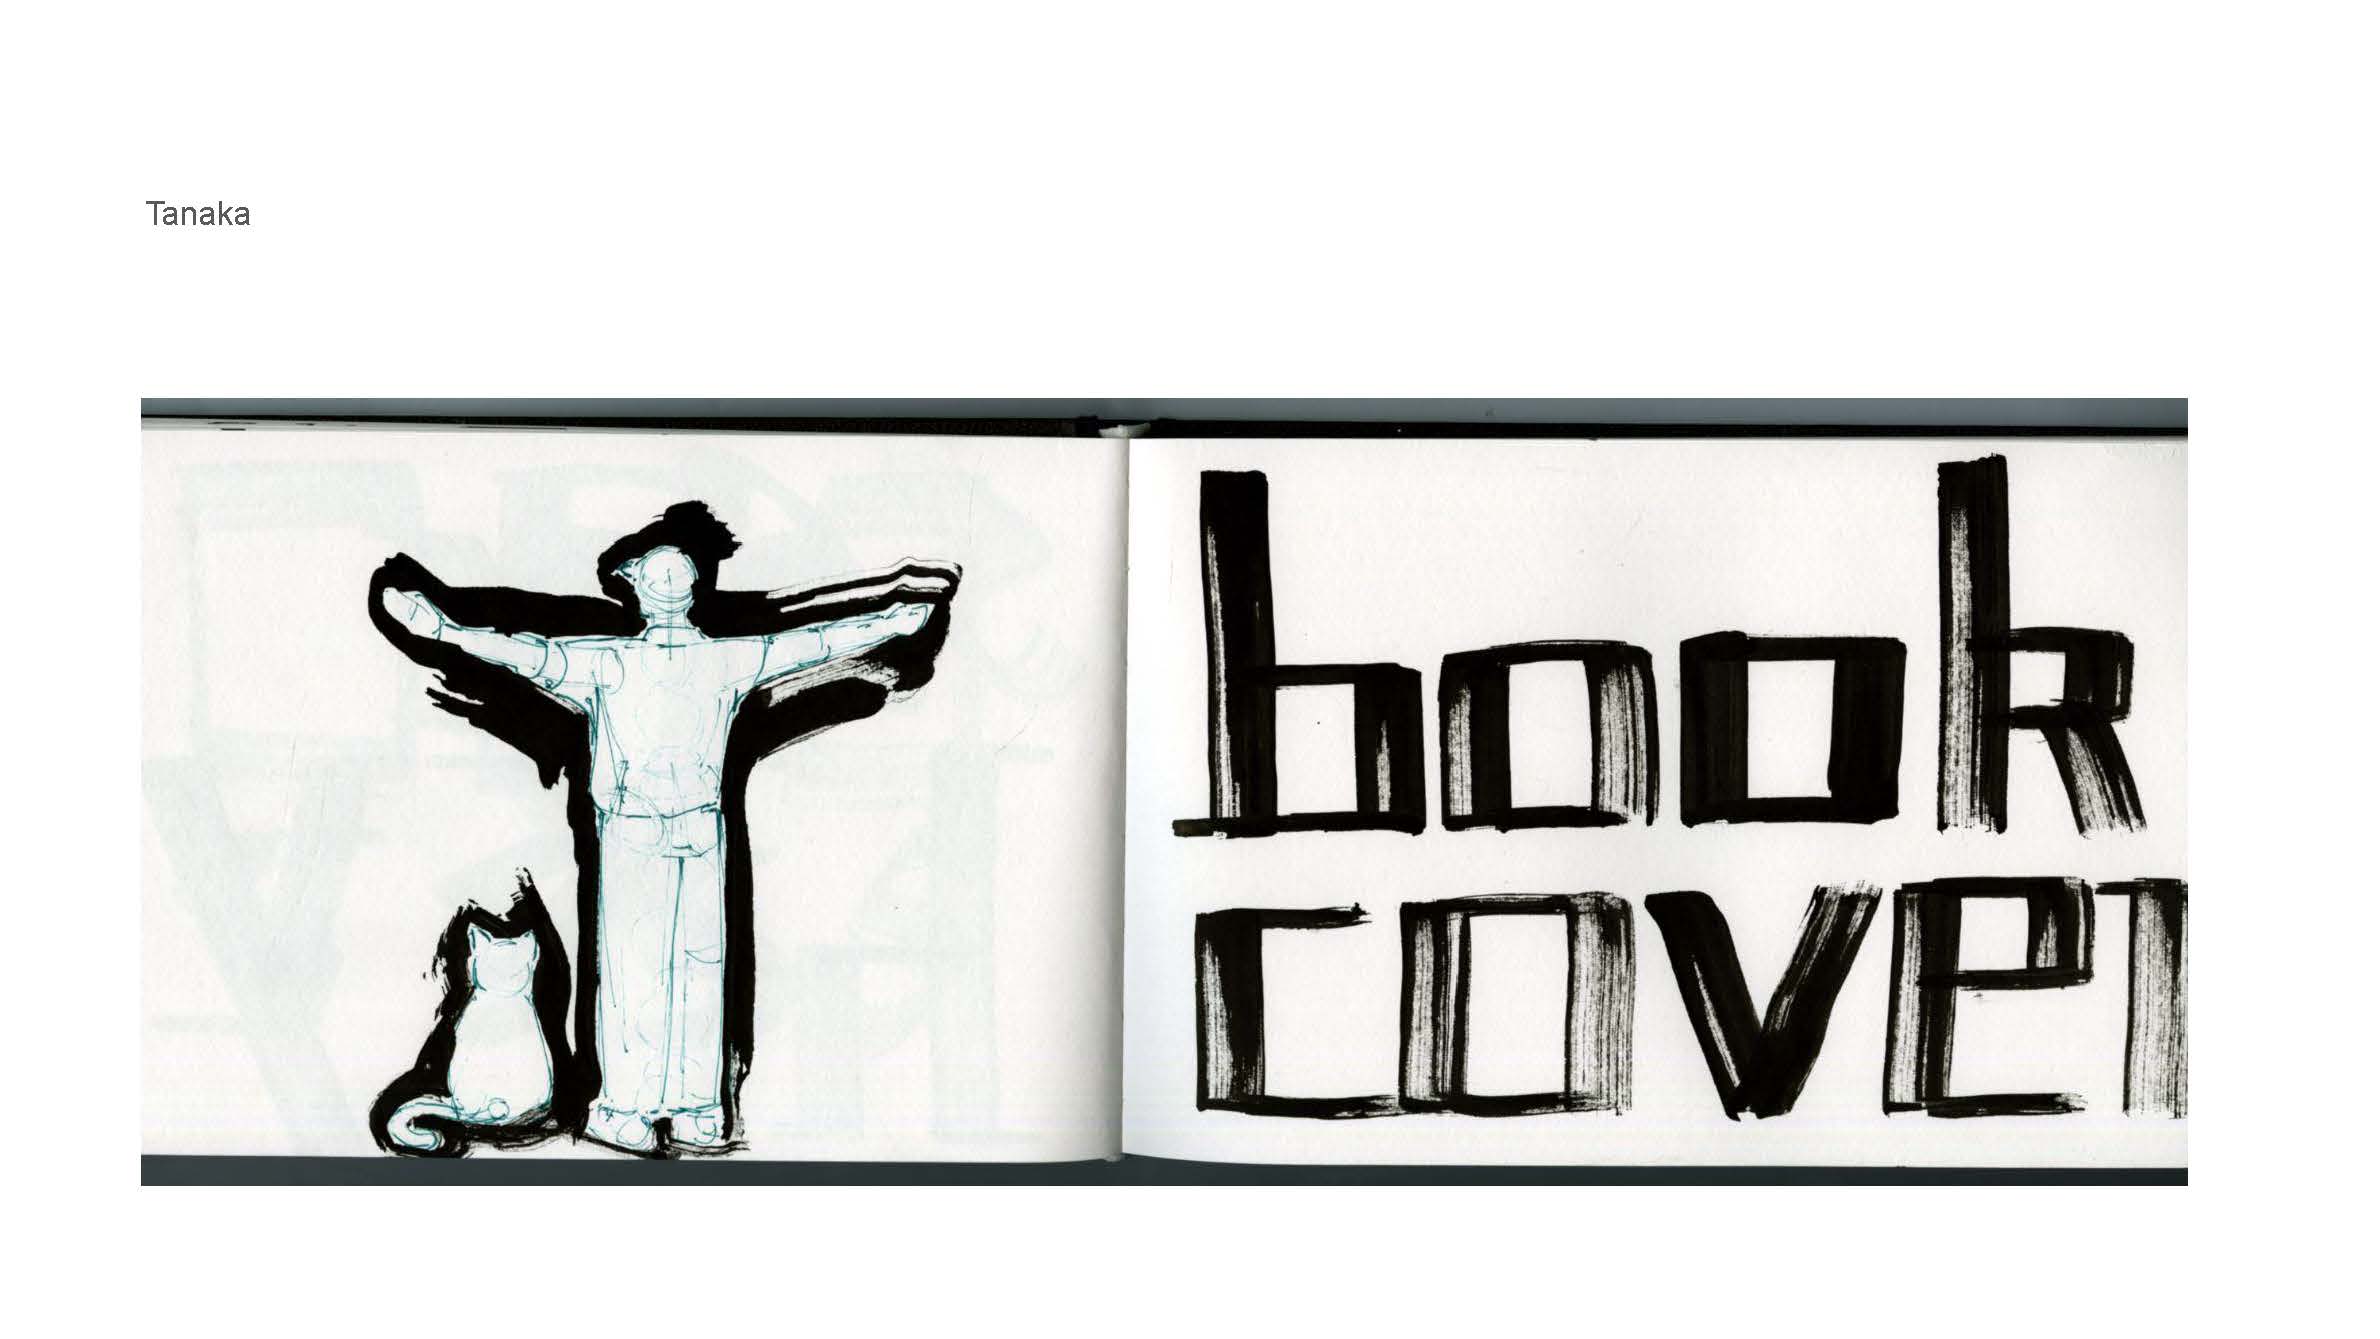 Tanaka
book
cover